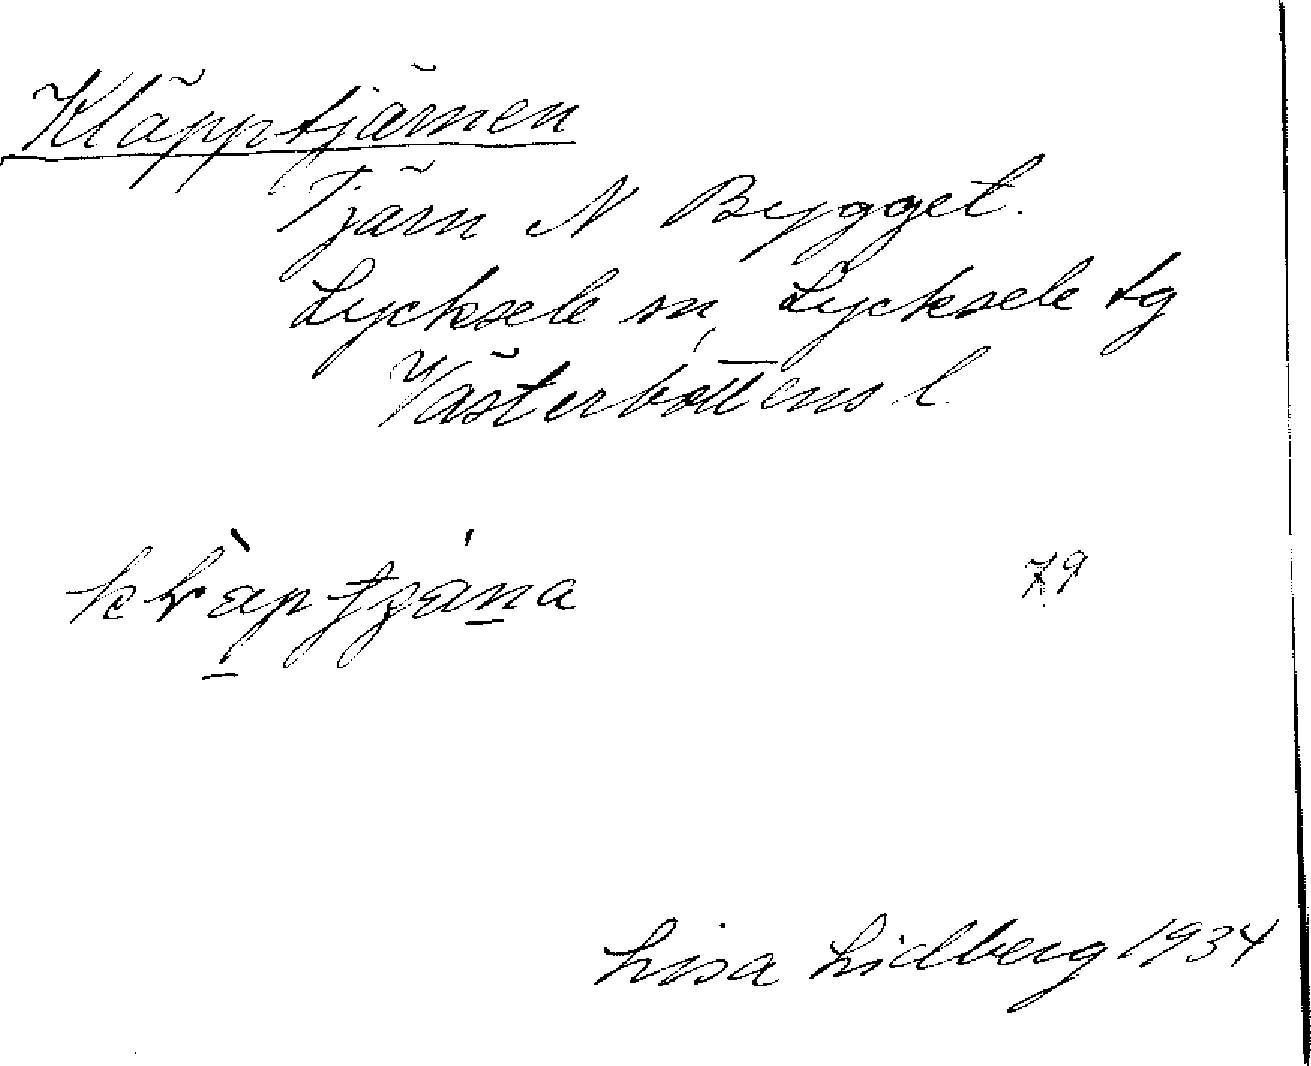 Kläpptjärnen
Tjärn N Bygget.
Lycksele sn, Lycksele tg
Västerbottens l.
79
Lisa Lidberg 1934